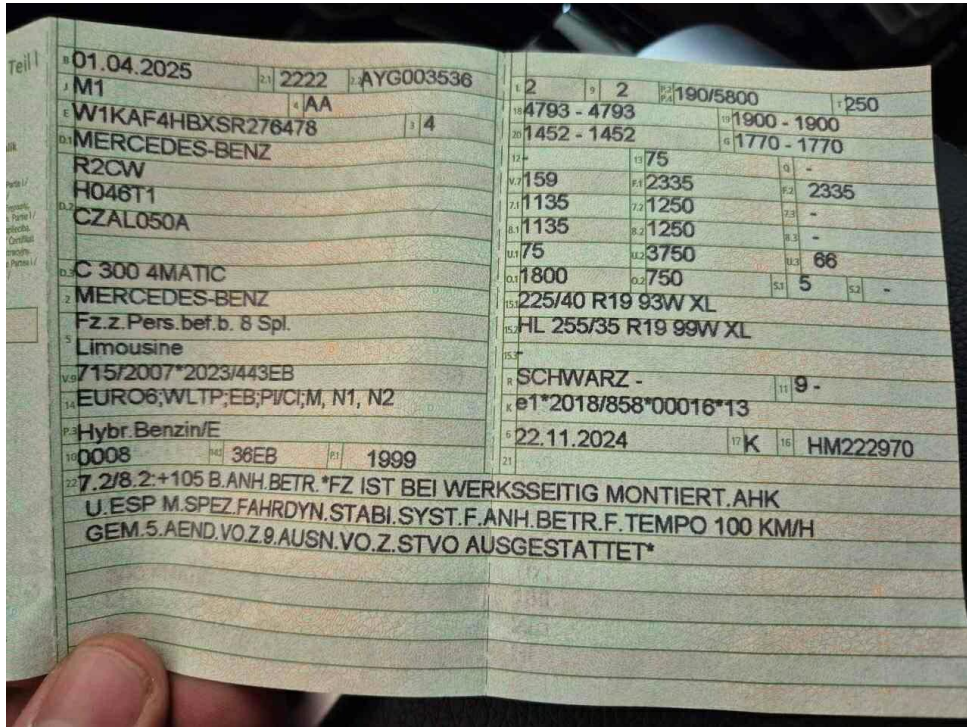 Teil I
B 01.04.2025 2.1 2222 2.2 AYG003536
J M1 4 AA
E W1KAF4HBXSR276478 3 4
D.1 MERCEDES-BENZ
R2CW
D.2 H046T1
CZAL050A
D.3 C 300 4MATIC
2 MERCEDES-BENZ
5 Fz.z.Pers.bef.b. 8 Spl.
Limousine
V.9 715/2007*2023/443EB
14 EURO6;WLTP;EB;PI/CI;M, N1, N2
P.3 Hybr.Benzin/E
10 0008 14.1 36EB P.1 1999
L 2 9 2 P.2 P.4 190/5800 T 250
18 4793 - 4793 19 1900 - 1900
20 1452 - 1452 G 1770 - 1770
12 - 13 75 Q -
V.7 159 F.1 2335 F.2 2335
7.1 1135 7.2 1250 7.3 -
8.1 1135 8.2 1250 8.3 -
U.1 75 U.2 3750 U.3 66
O.1 1800 O.2 750 S.1 5 S.2 -
15.1 225/40 R19 93W XL
15.2 HL 255/35 R19 99W XL
15.3 -
R SCHWARZ - 11 9 -
K e1*2018/858*00016*13
6 22.11.2024 17 K 16 HM222970
21
22 7.2/8.2:+105 B.ANH.BETR.*FZ IST BEI WERKSSEITIG MONTIERT.AHK
U.ESP M.SPEZ.FAHRDYN.STABI.SYST.F.ANH.BETR.F.TEMPO 100 KM/H
GEM.5.AEND.VO.Z.9.AUSN.VO.Z.STVO AUSGESTATTET*